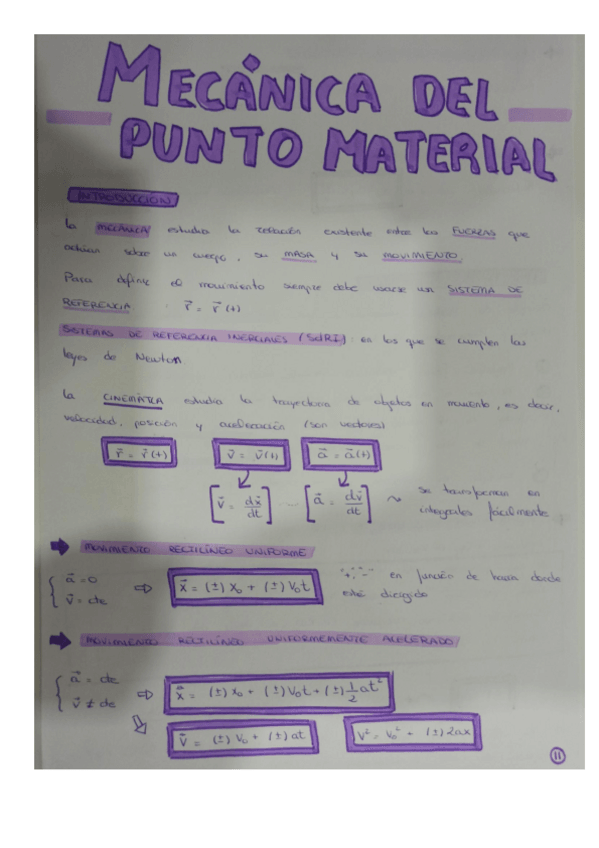 MECÁNICA DEL
PUNTO MATERIAL
INTRODUCCIÓN
La MECÁNICA estudia la relación existente entre las FUERZAS que
actúan sobre un cuerpo, su MASA y su MOVIMIENTO.
Para definir el movimiento siempre debe usarse un SISTEMA DE
REFERENCIA : r⃗ = r⃗ (t)
SISTEMAS DE REFERENCIA INERCIALES (SdRI): en los que se cumplen las
leyes de Newton.
La CINEMÁTICA estudia la trayectoria de objetos en movimiento, es decir,
velocidad, posición y aceleración (son vectores)
r⃗ = r⃗(t) v⃗ = v⃗(t) a⃗ = a⃗(t)
[v⃗ = dx⃗/dt] ... [a⃗ = dv⃗/dt] ~> se transforman en
integrales fácilmente
MOVIMIENTO RECTILÍNEO UNIFORME
a⃗ = 0
v⃗ = cte
⇒ x⃗ = (±) x₀ + (±) v₀t
"+", "-" en función de hacia donde
esté dirigido
MOVIMIENTO RECTILÍNEO UNIFORMEMENTE ACELERADO
a⃗ = cte
v⃗ ≠ cte
⇒ x⃗ = (±) x₀ + (±) v₀t + (±) 1/2 at²
v⃗ = (±) v₀ + (±) at v² = v₀² + (±) 2ax
11